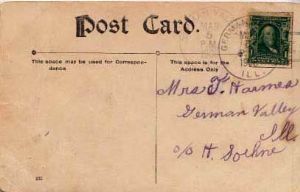 Post Card.
This space may be used for Correspondence.
This space is for the Address Only
Mrs. T. Harmes
German Valley
Ill.
c/o H.
ILL.